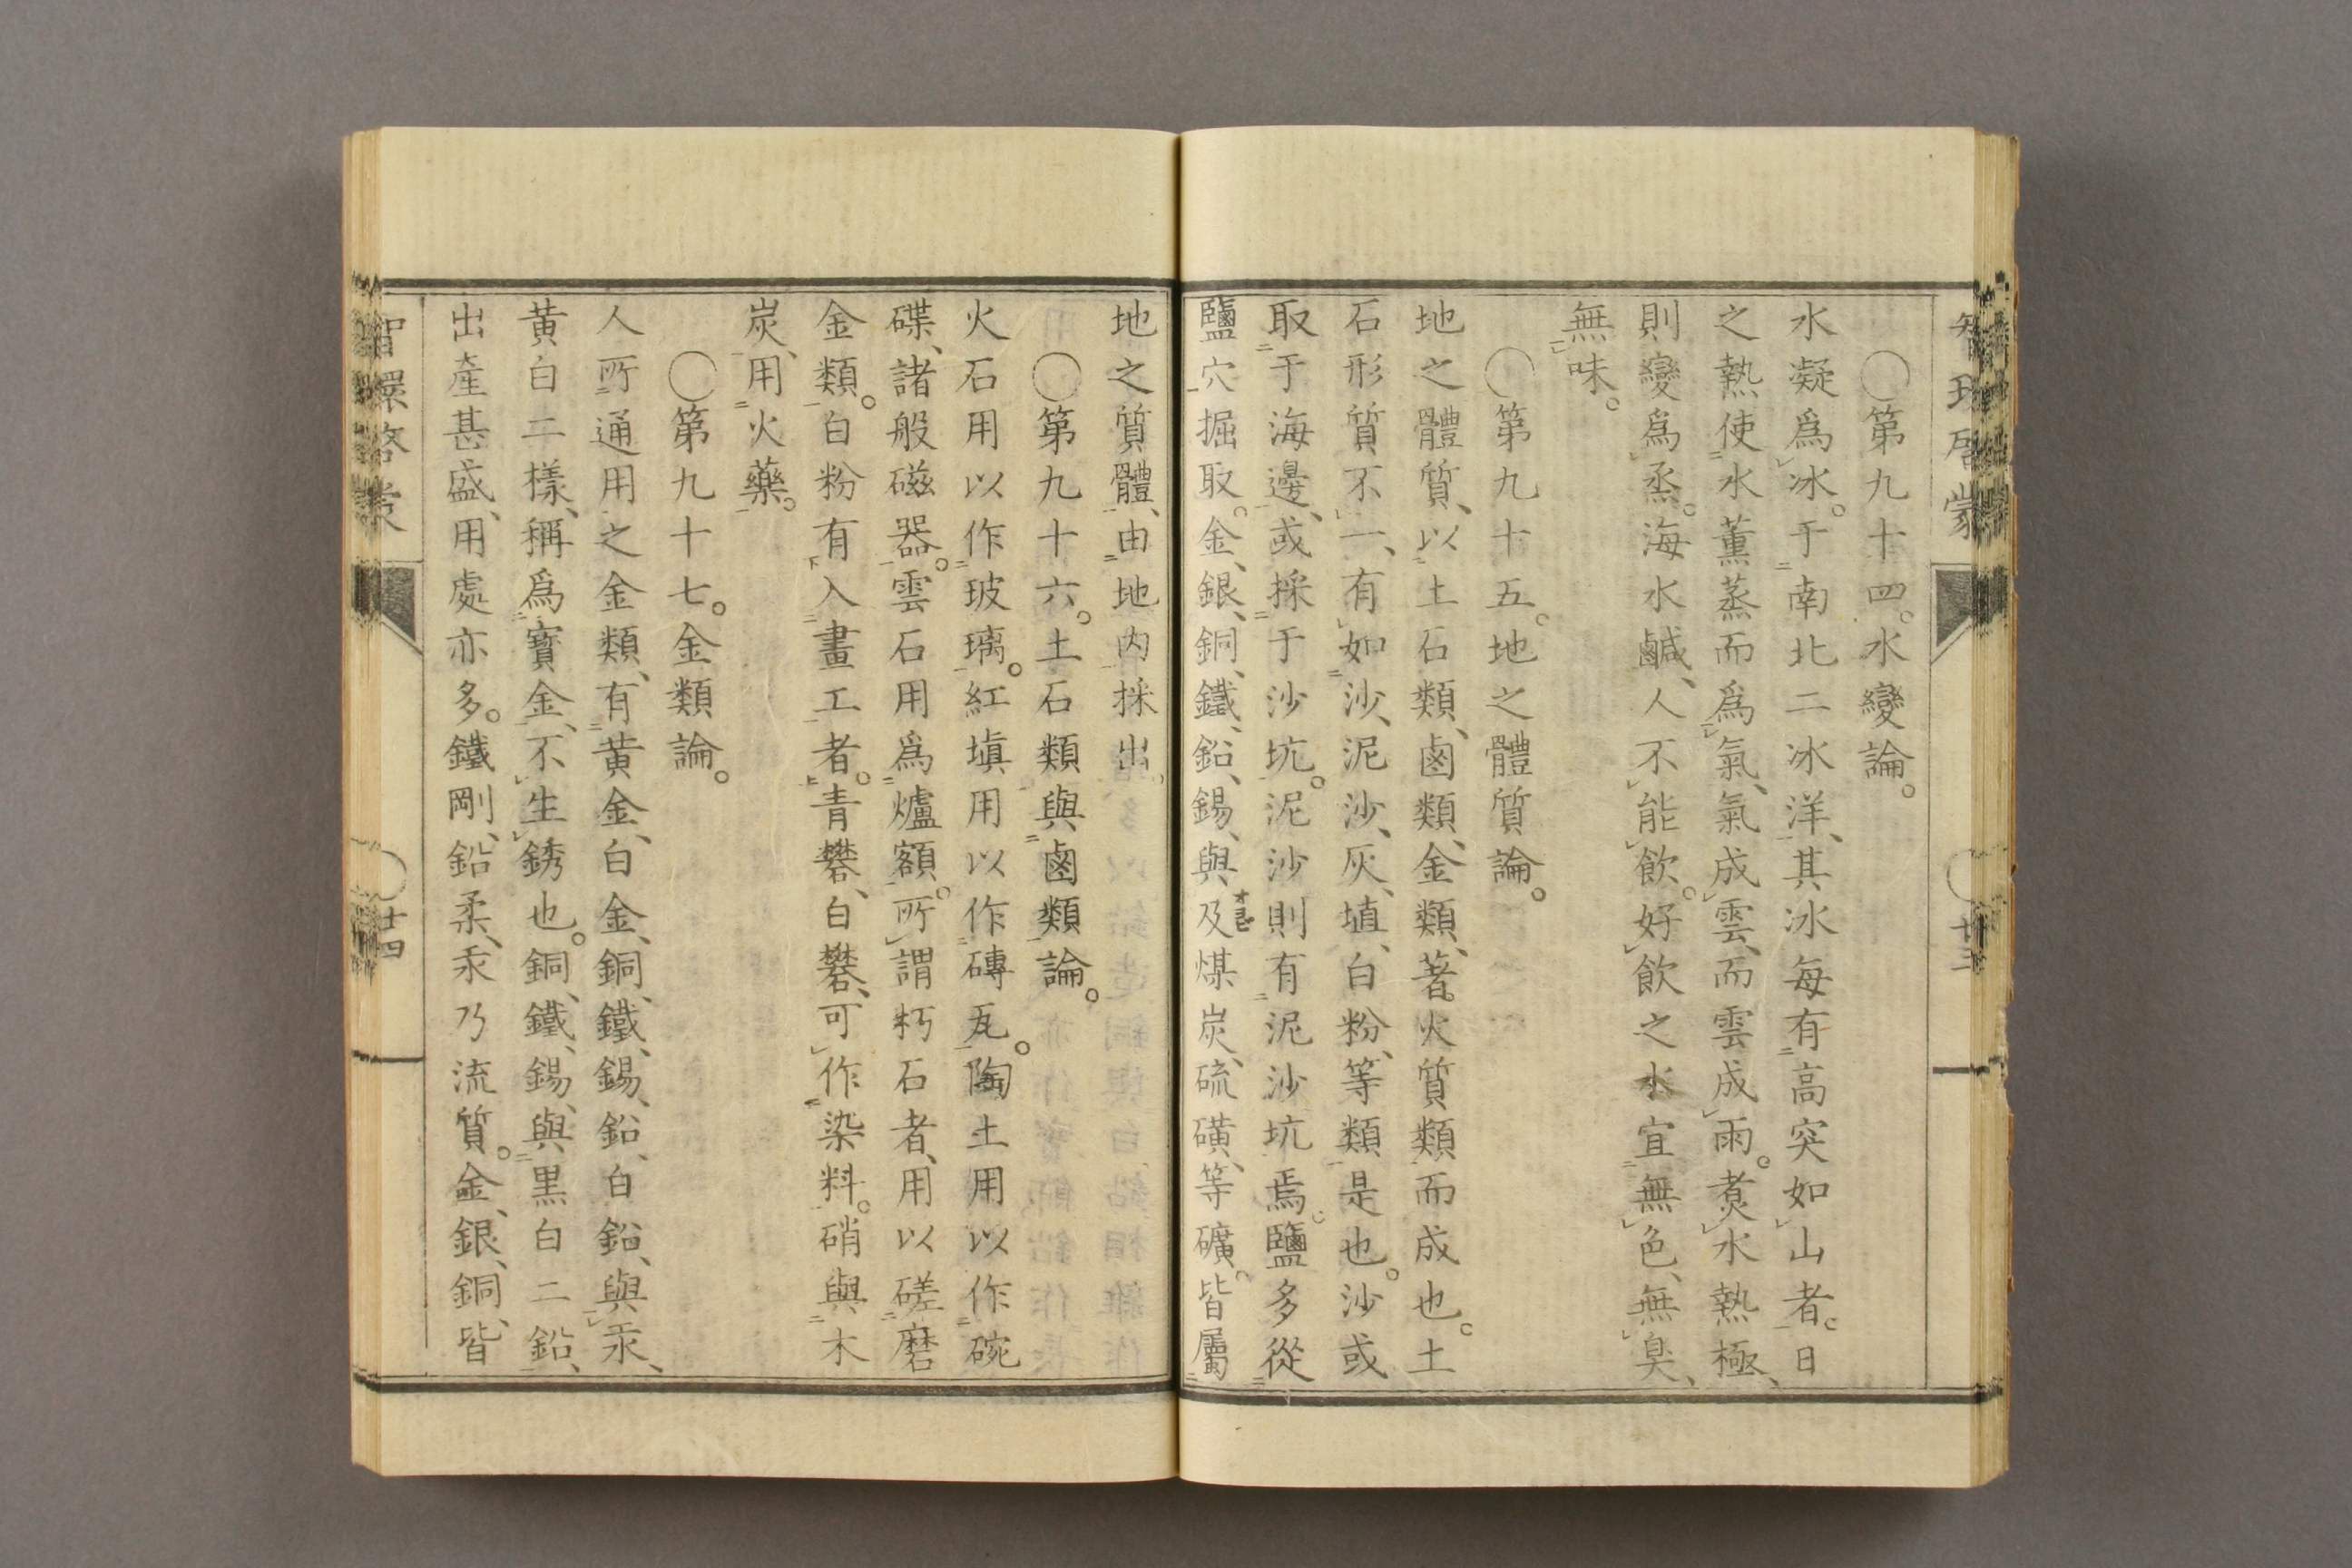 〇第九十四。水變論。
水凝爲冰。于南北二冰洋、其冰每有高突如山者。日
之熱使水薰蒸而爲氣、氣成雲、而雲成雨。煑水熱極、
則變爲烝。海水鹹、人不能飮。好飮之水宜無色、無臭、
無味。
〇第九十五。地之體質論。
地之體質、以土石類、鹵類、金類、著火質類而成也。土
石形質不一、有如沙、泥沙、灰、埴、白粉、等類是也。沙或
取于海邊、或採于沙坑。泥沙則有泥沙坑焉。鹽多從
鹽穴掘取。金、銀、銅、鐵、鉛、錫、與及煤炭、硫磺、等礦。皆屬
地之質體、由地內採出。
〇第九十六。土石類與鹵類論。
火石用以作玻璃。紅塡用以作磚瓦。陶土用以作碗
碟、諸般磁器。雲石用爲爐額。所謂朽石者、用以磋磨
金類。白粉有入畫工者。青礬、白礬、可作染料。硝與木
炭、用火藥。
〇第九十七。金類論。
人所通用之金類、有黃金、白金、銅、鐵、錫、鉛、白鉛、與汞、
黃白二樣、稱爲寶金、不生銹也。銅、鐵、錫、與黑白二鉛、
出產甚盛、用處亦多。鐵剛、鉛柔、汞乃流質。金、銀、銅、皆
智環啓蒙
〇
廿四